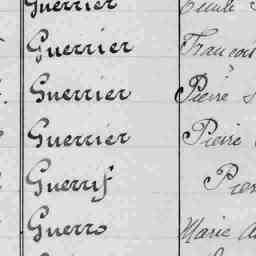 Guerrier
Guerrier François
Guerrier Pierre
Guerrier Pierre
Guerrif
Guerro Marie